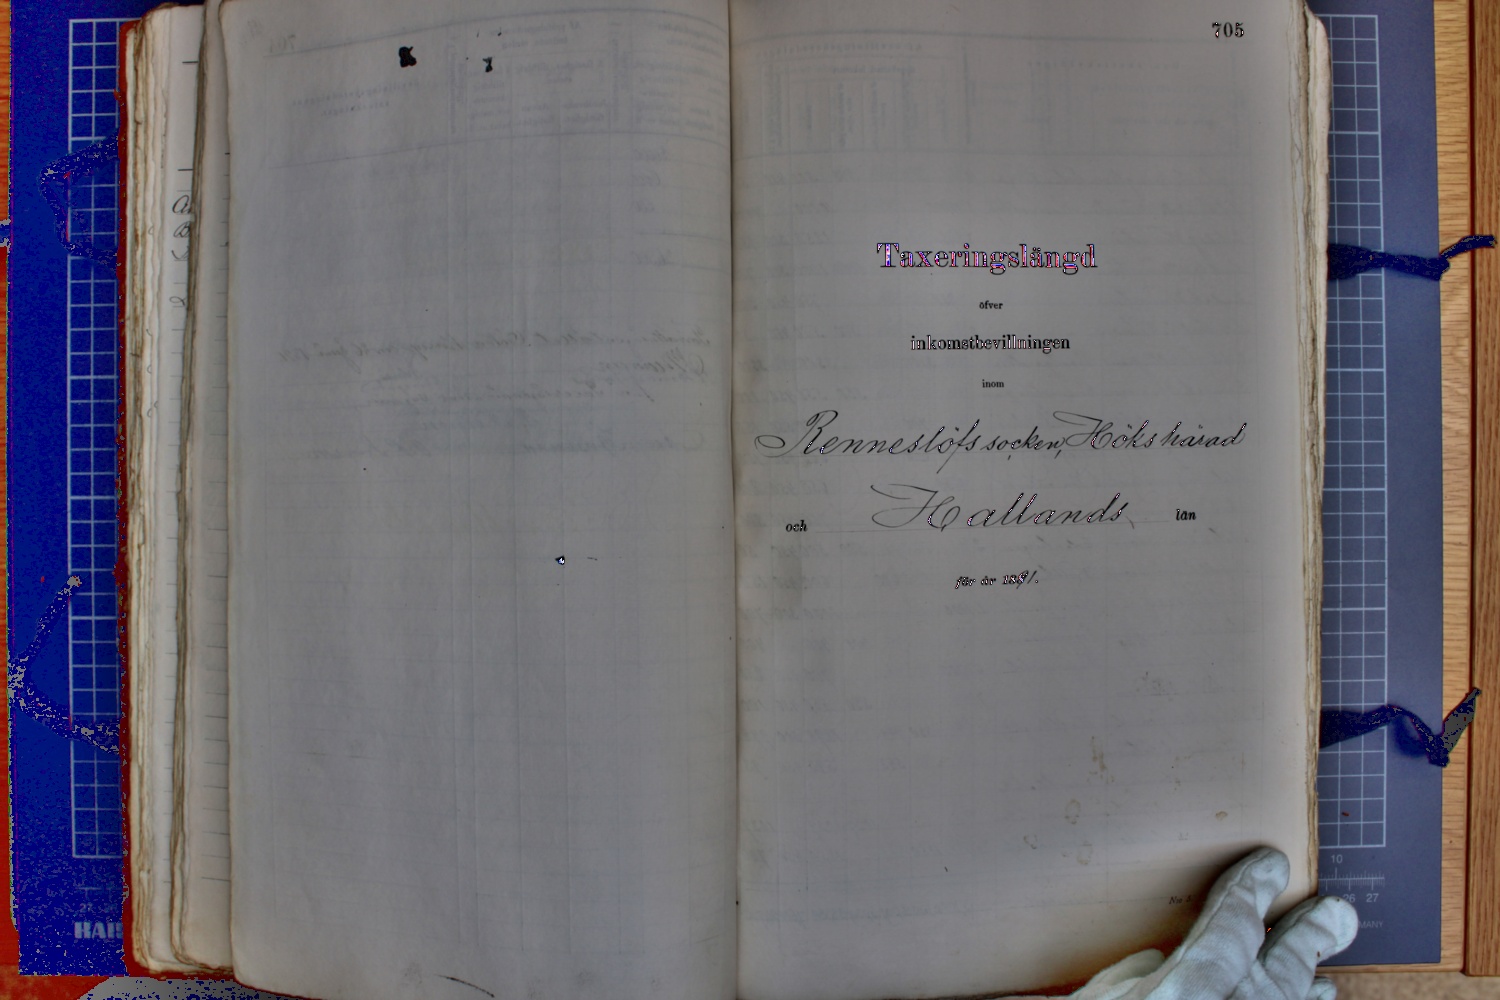 705
Taxeringslängd
öfver
inkomstbevillningen
inom
Renneslöfs socken, Höks härad
och Hallands län
för år 1891.
No
10
26 27
27